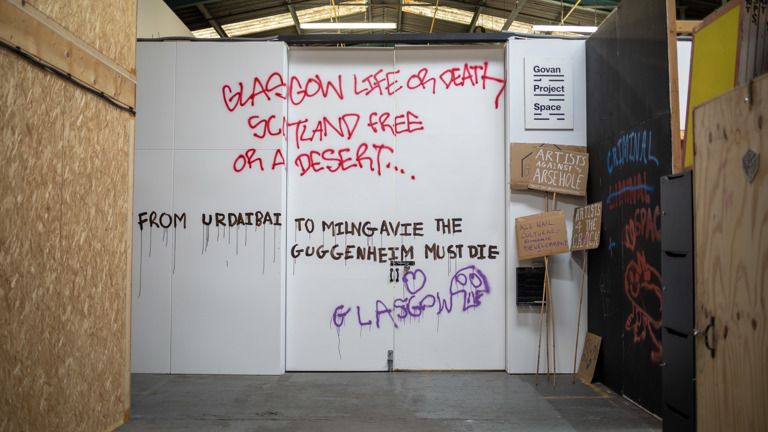 GLASGOW LIFE OR DEATH
SCOTLAND FREE
OR A DESERT...
FROM URDAIBAI TO MILNGAVIE THE
GUGGENHEIM MUST DIE
GLASGOW
Govan
Project
Space
ARTISTS
AGAINST
ARSEHOLE
ARTISTS
4 THE
ALL HAIL
CULTURAL
DEVELOPMENT
CRIMINAL
LIMINAL
SPACE